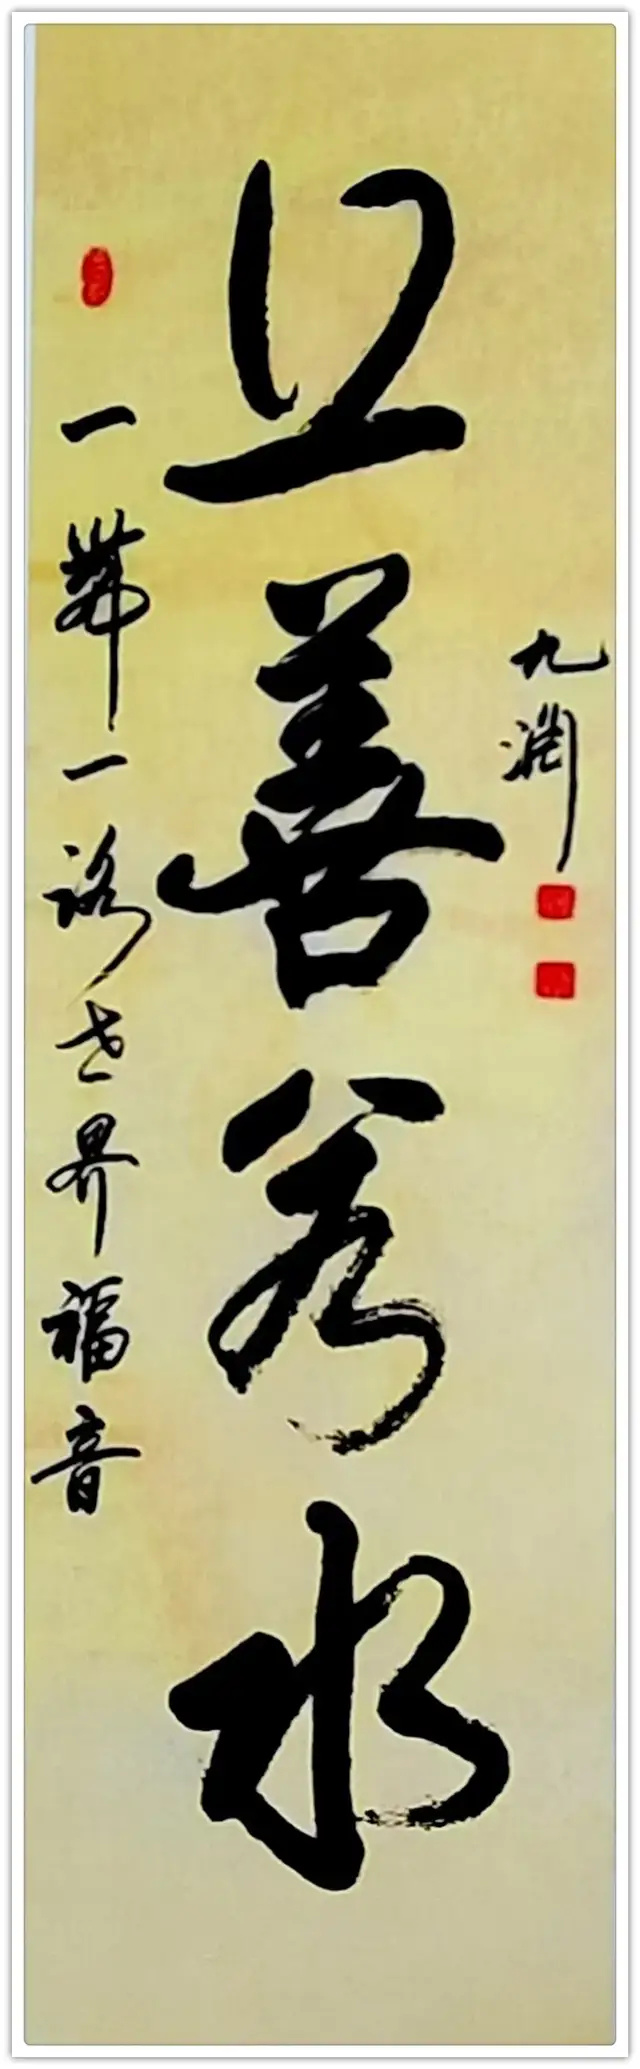 一帶一路世界福音
上善若水
九渊